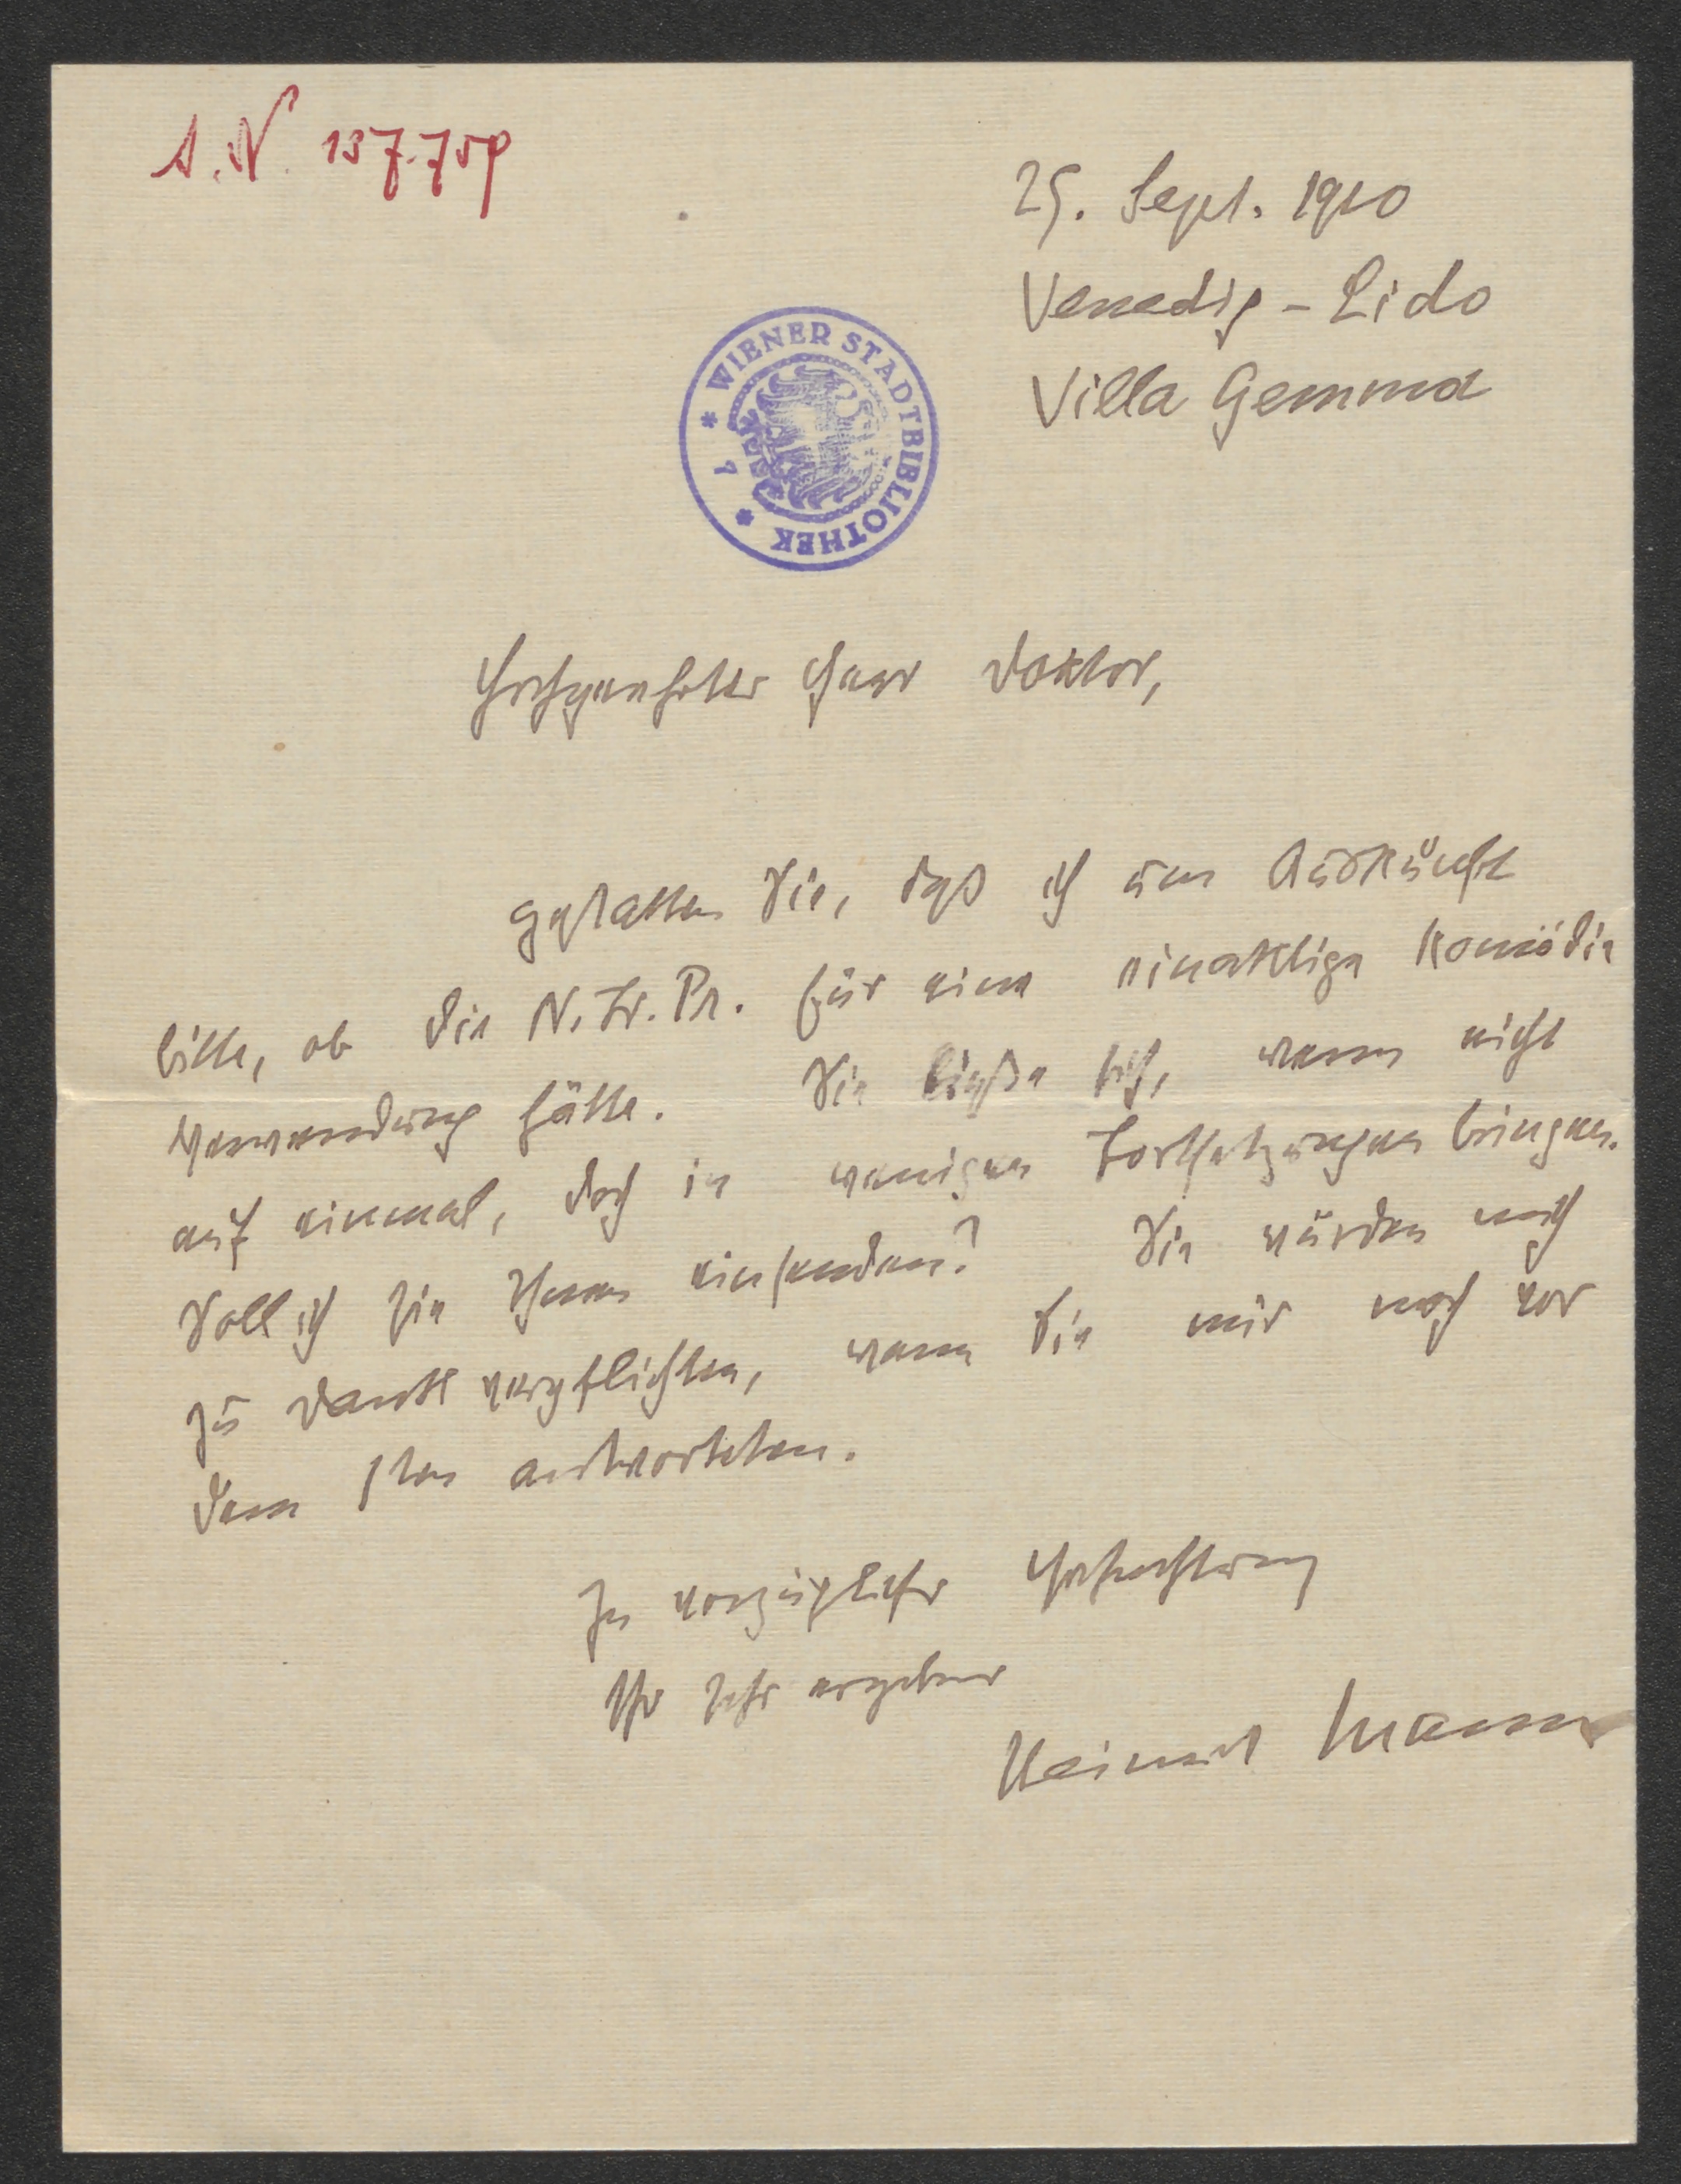 25. Sept. 1910
Venedig - Lido
Villa Gemma
* WIENER STADTBIBLIOTHEK *
Hochgeehrter Herr Doktor,
gestatten Sie, daß ich um Auskunft
bitte, ob die N. Fr. Pr. für eine einaktige Komödie
Verwendung hätte. Sie ließe sich, wenn nicht
auf einmal, doch in wenigen Fortsetzungen bringen.
Soll ich sie Ihnen einsenden? Sie würden mich
zu Dank verpflichten, wenn Sie mir noch vor
dem 1ten antworteten.
In vorzüglicher Hochachtung
Ihr sehr ergebener
Heinrich Mann